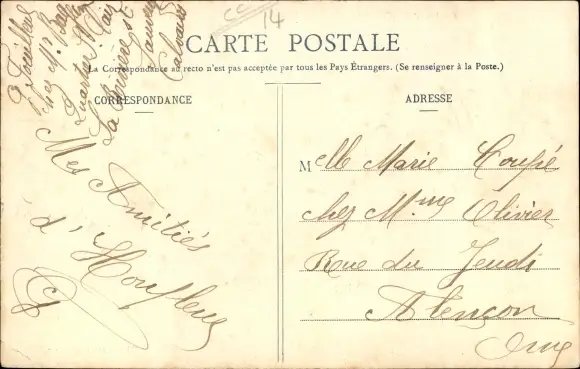 CC
14
CARTE POSTALE
La Correspondance au recto n'est pas acceptée par tous les Pays Étrangers. (Se renseigner à la Poste.)
CORRESPONDANCE
chez Mr
Quartier St
La Rivière St
Sauveur
Calvados
Mes Amitiés
d'Honfleur
ADRESSE
Melle Marie Coupé
chez Mme Olivier
Rue du Jeudi
Alençon
Orne